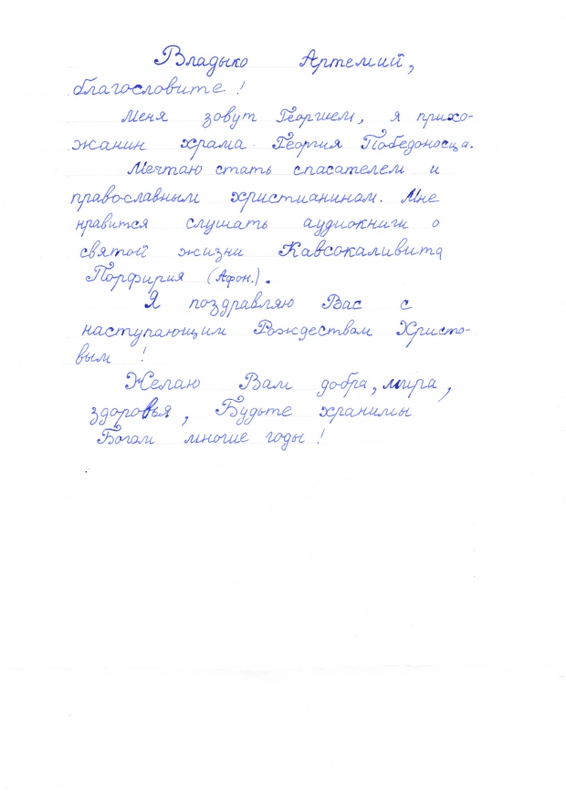 Владыко Артемий,
благословите!
Меня зовут Георгием, я прихо-
жанин храма Георгия Победоносца.
Мечтаю стать спасателем и
православным христианином. Мне
нравится слушать аудиокниги о
святой жизни Кавсокаливита
Порфирия (Афон.).
Я поздравляю Вас с
наступающим Рождеством Христо-
вым!
Желаю Вам добра, мира,
здоровья, Будьте хранимы
Богом многие годы!